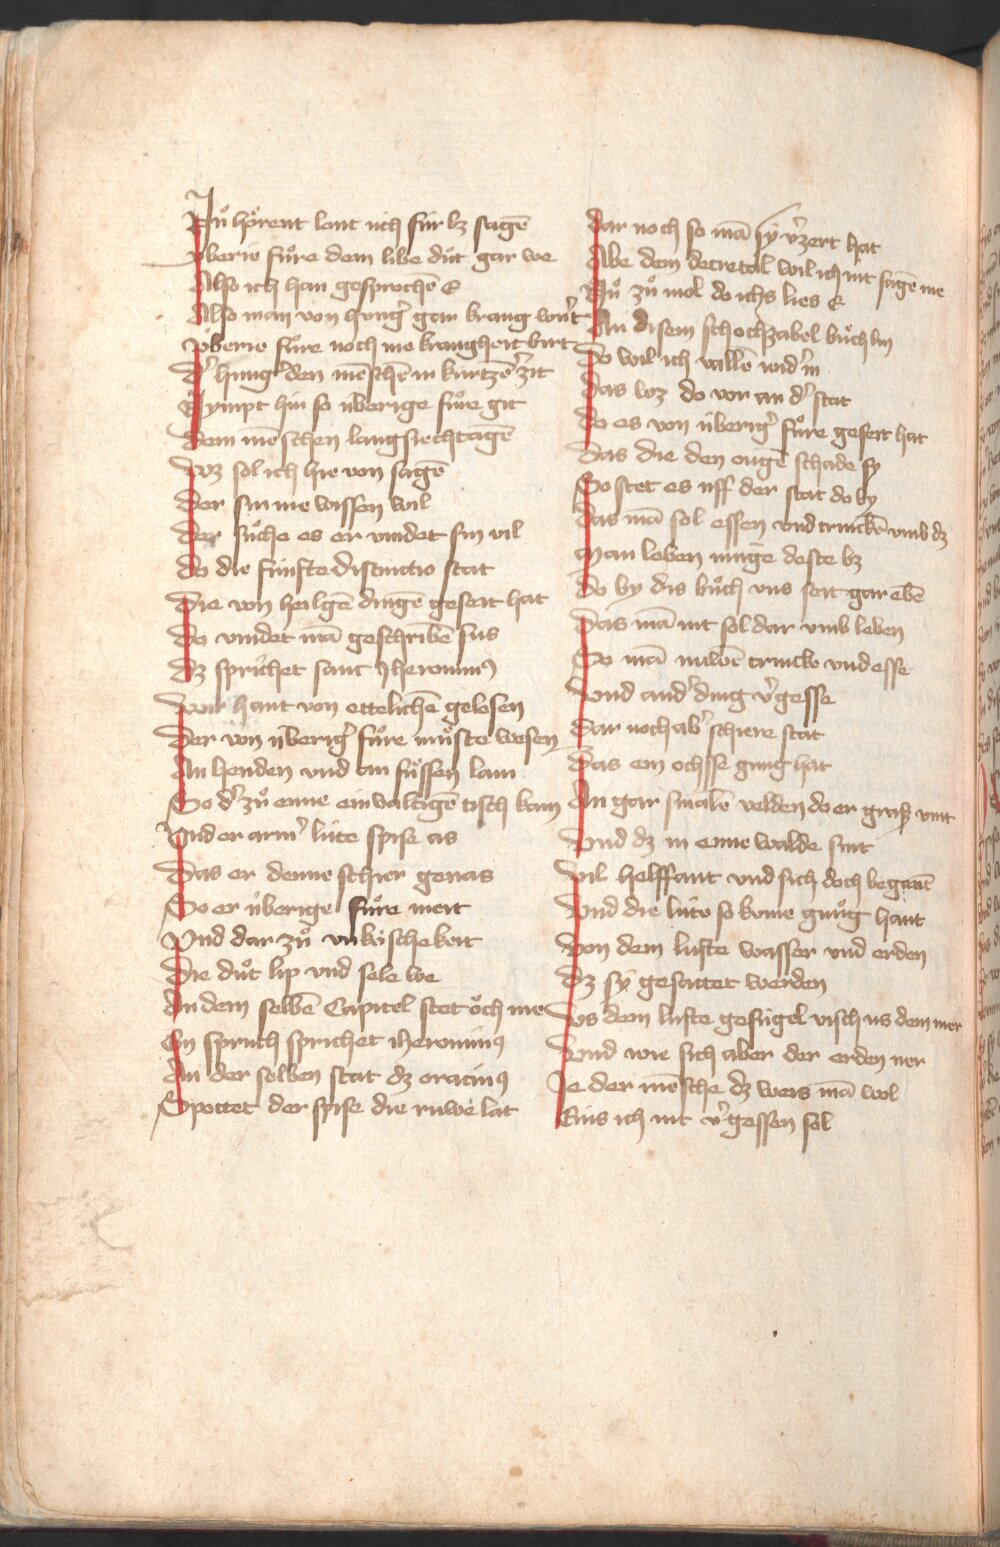 Nuͦ hoͤrent lant uch fúr bz sagē
vberie fuͦre dem libe duͦt gar we
Also ich han gesprochē E
Also man von hungˀ gar krang wurt
vͤberie fuͦre noch me krangheit birt
Dˀ hungˀ den mēschē in kurtzē zit
Nympt hin so úberige fuͦre git
Dem mēschen langsiechtagē
Waz sol ich hie von sagē
Der sin me wissen wil
Der suͦche es er vindet sin vil
Do die fúnfte distinctio stat
Die von heilgē dingē geseit hat
Do vindet mā geschribē sus
Dz sprichet sant Jheronimꝯ
Wir hant von ettelichē gelesen
Der von úberigˀ fuͦre muͦste wesen
An henden vnd an fuͤssen lam
So dˀ zuͦ enne einvaltigē tisch kam
Vnd er armˀ lúte spise as
Das er denne schier genas
So er úberige fuͦre meit
Vnd dar zuͦ vnkúschekeit
Die duͦt lip vnd sele we
In dem selbē Capitel stet oͧch me
Ein spruch sprichet Jheronimꝯ
An der selben stat dz oracius
Spottet der spise die ruwe lat
Dar noch so mā sý vˀzert hat
Abe dem decretal wil ich nit sagē me
Nuͦ zuͦ mol do ichs lies E
An disem schochzabel buͤchlin
Do wil ich vallē widˀ in
Das waz do vor an dˀ stat
Do es von úberigˀ fuͦre geseit hat
Das die den ougē schade sy
So stet es uff der stat do by
Das mā sol essen vnd trinckē vmb dz
Man leben muge deste bz
Do by dis buͦch vns seit gar ebē
Das mā nit sol dar vmb leben
So mā nuwēt trincke vnd esse
Vnd andˀ ding vˀgesse
Dar noch abˀ schiere stat
Das ein ochsse gnug hat
An gar smalē velden do er gras vint
Vnd dz in enne walde sint
Vil helffant vnd sich doch begant
Vnd die lúte so kome gnuͦg hant
Von dem lufte wasser vnd erden
Dz sý gesattet werden
Vs dem lufte gefúgel visch us dem mer
Vnd wie sich aber der erden ner
Je der mēsche dz weis mā wol
Eins ich nit vˀgessen sol